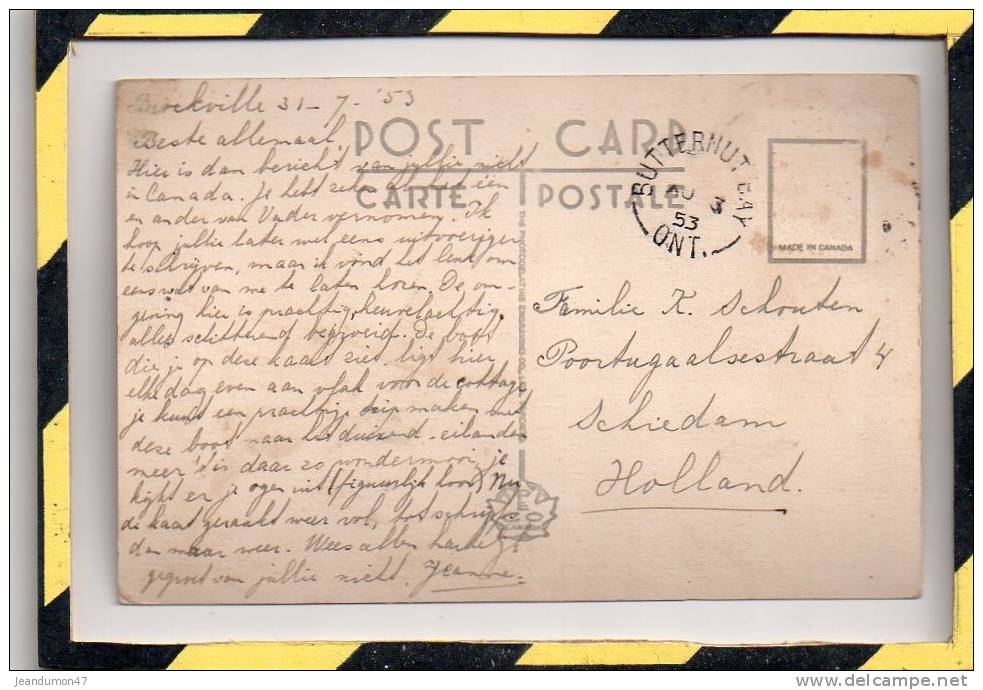 Brockville 31-7-'53
Beste allemaal,
Hier is dan bericht van jullie nicht
in Canada. Je hebt zeker al het één
en ander van Vader vernomen. Ik
hoop jullie later wel eens uitvoeriger
te schrijven, maar ik vond het leuk om
eens wat van me te laten horen. De om-
geving hier is prachtig, heuvelachtig,
alles schitterend begroeid. De boot
die je op deze kaart ziet, ligt hier
elke dag even aan vlak voor de cottage
je kunt een prachtige trip maken met
deze boot naar het duizend-eilanden
meer 't is daar zo wondermooi, je
kijkt er je ogen uit (figuurlijk hoor) Nu
de kaart geraakt weer vol, tot schrijfs
dan maar weer. Wees allen hartelijk
gegroet van jullie nicht. Jeanne.
POST CARD
CARTE POSTALE
BUTTERNUT BAY
AU 3
53
ONT.
MADE IN CANADA
Familie K. Schouten
Poortugaalsestraat 4
Schiedam
Holland.
THE PHOTOGELATINE ENGRAVING CO. LTD.
CANADA
jeandumon47
www.delcampe.net